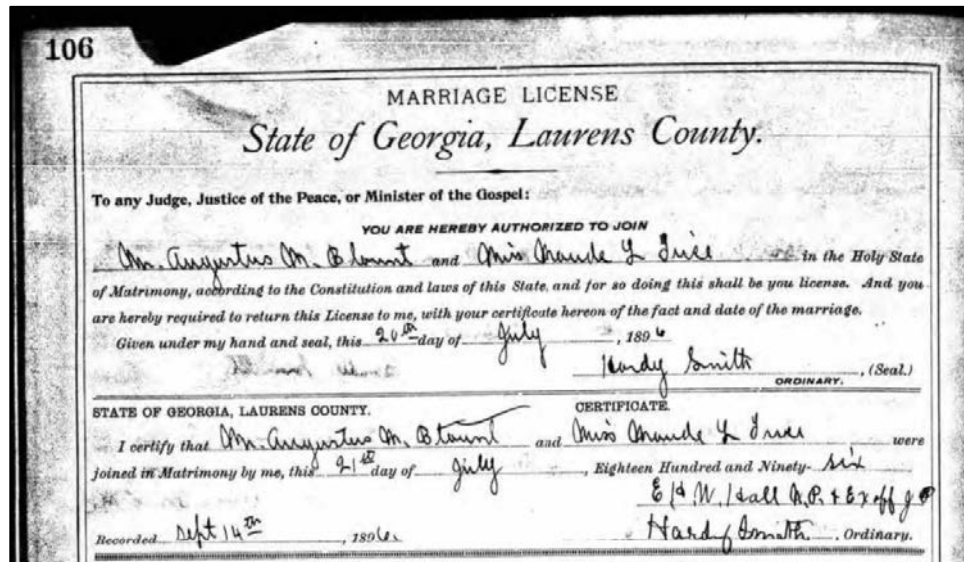 106
MARRIAGE LICENSE
State of Georgia, Laurens County.
To any Judge, Justice of the Peace, or Minister of the Gospel:
YOU ARE HEREBY AUTHORIZED TO JOIN
Mr. Augustus M. Blount and Miss Maude L in the Holy State
of Matrimony, according to the Constitution and laws of this State, and for so doing this shall be you license. And you
are hereby required to return this License to me, with your certificate hereon of the fact and date of the marriage.
Given under my hand and seal, this 20th day of July , 1896
Hardy Smith , (Seal.)
ORDINARY.
STATE OF GEORGIA, LAURENS COUNTY. CERTIFICATE.
I certify that Mr. Augustus M. Blount and Miss Maude L were
joined in Matrimony by me, this 21st day of July , Eighteen Hundred and Ninety- six
E. H. W. Hall N.P. & Ex off J P
Recorded Sept 14th , 1896. Hardy Smith , Ordinary.